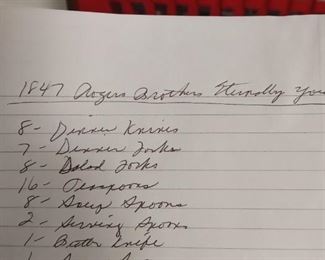 1847 Rogers Brothers Eternally
8 - Dinner Knives
7 - Dinner Forks
8 - Salad Forks
16 - Teaspoons
8 - Soup Spoons
2 - Serving Spoons
1 - Butter Knife